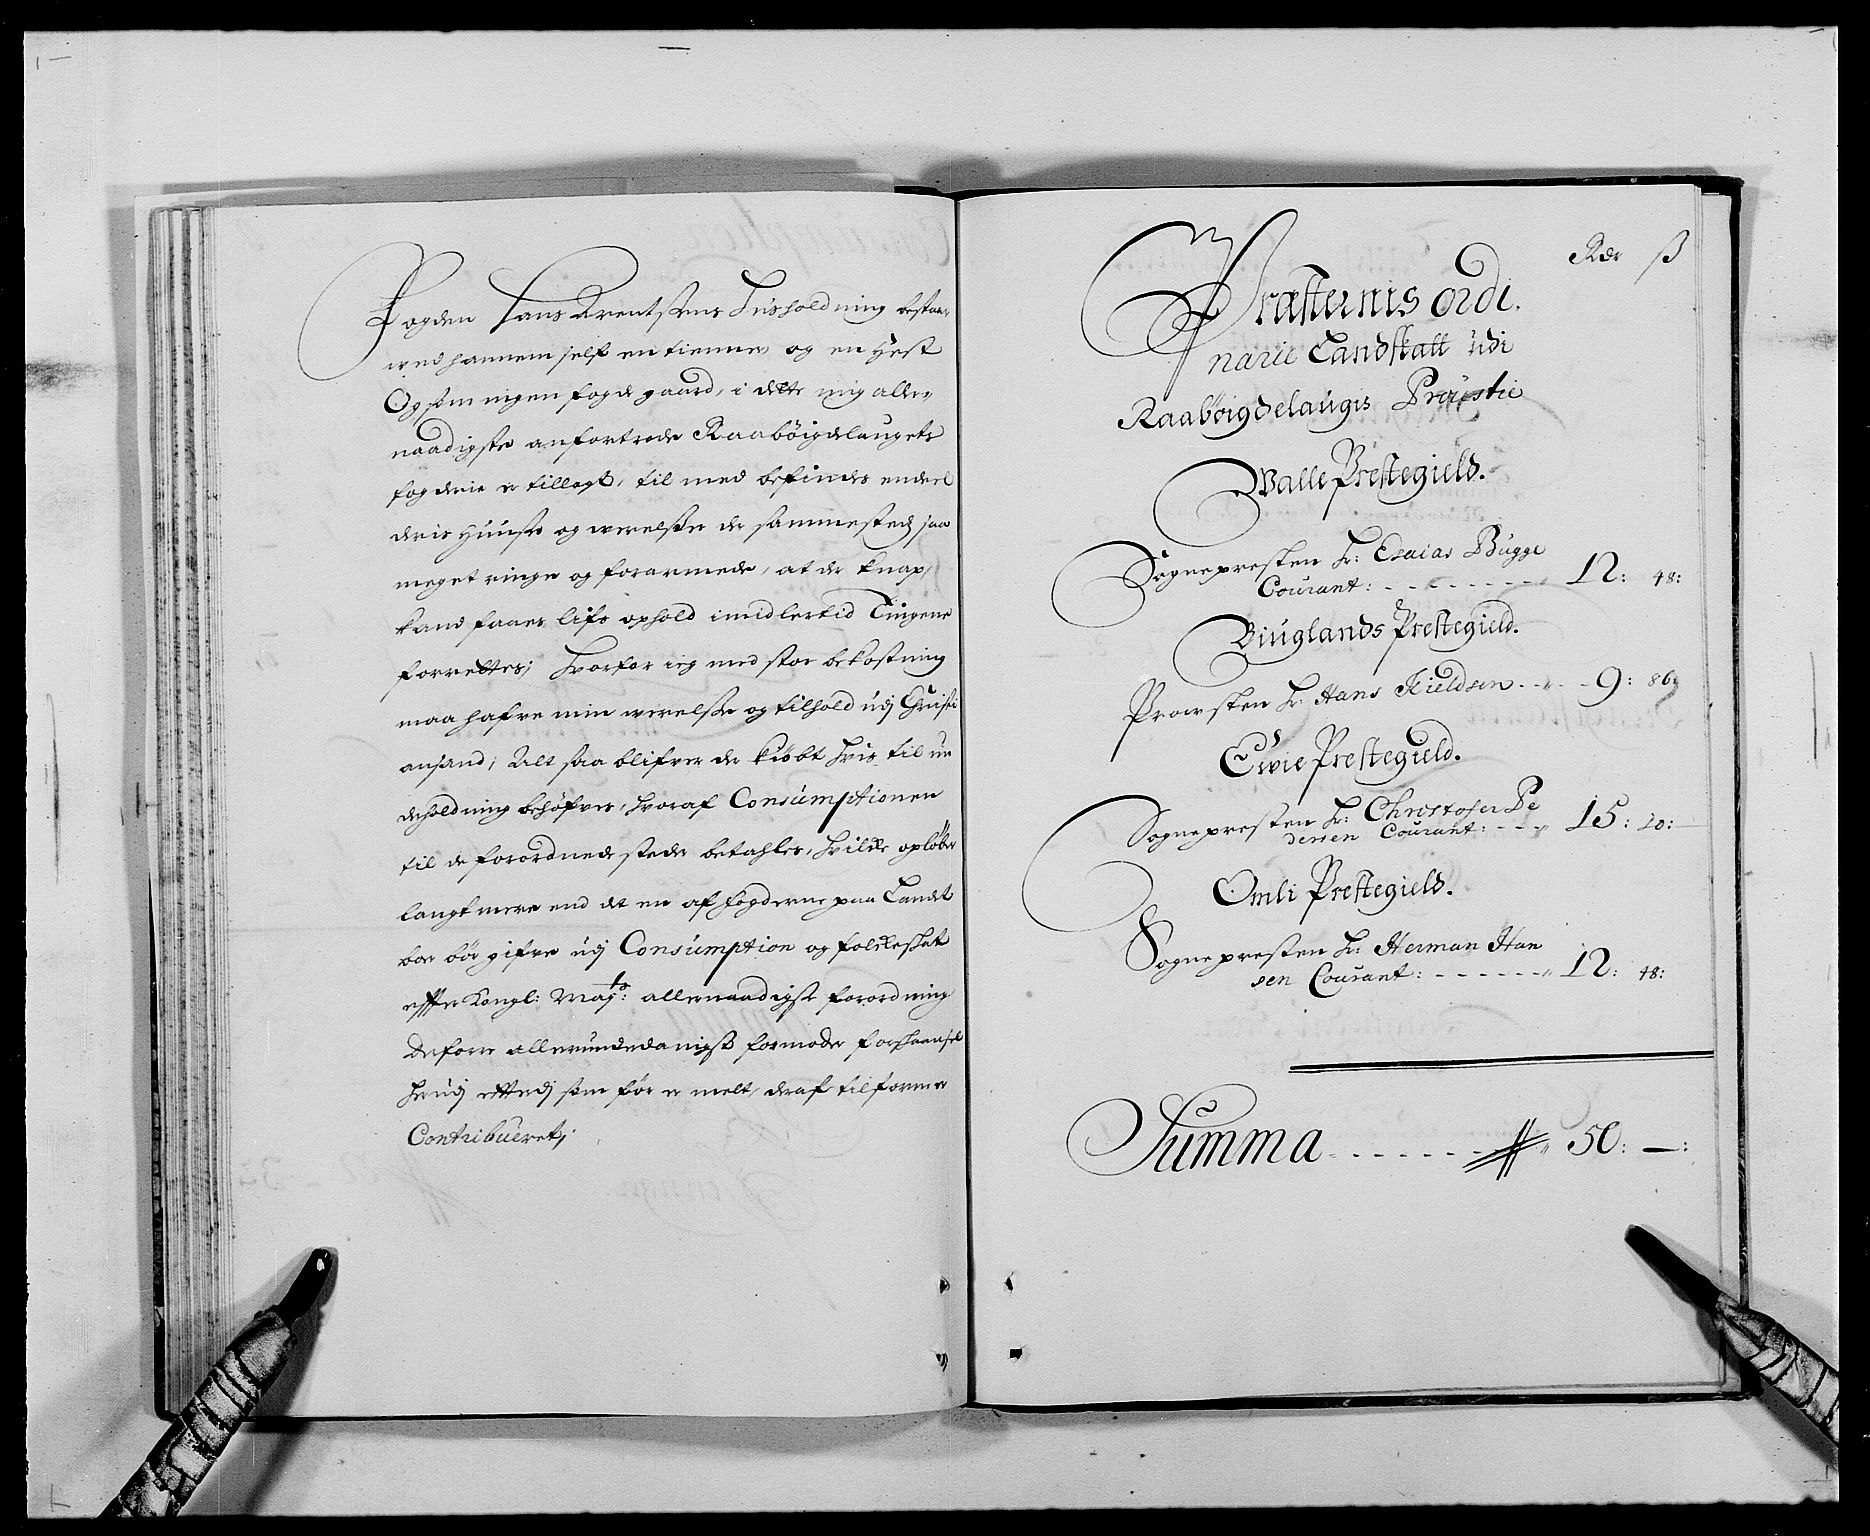 Fogden Hans Arentsens Huusholdning bestaar
med hannem self en tienner og en Hest
Og som ingen fogde gaard, i dette mig aller,,
naadigste anfortrode Raabøigdelaugets
fogderie er tillagt, til med befindes endeel
deris Huuse og werelsse der sammesteds saa
meget ringe og forarmede, at der knap,
kand faaes lifs ophold imidlertid Tingene
forrettes; Hvorfor ieg med stor bekostning
maa hafve min werelsse og tilhold udj Christi
ansand; Alt saa blifver der kiøbt hvis til un
derholdning behøfves, hvoraf Consumptionen
til de forordnede steder betahles, hvilcke opløber
langt mere end det en af fogderne paa Landet
boer bør gifve udj Consumption og folcke skat
effter Kongl: May:ts allernaadigste forordning
Deforre allerunderdanigst formoder forskaansel
herudj effterdj som før er melt, deraf tilforne er
Contribueret;
Rdr ß
Præsternis ordi.
narie Landskatt udi
Raabøigdelaugis Prousti
Walle Prestegield.
Sognepresten Hr: Esaias Bugge
Courant: - - - - - - - - 12: 48:
Biuglands Prestegield.
Prowsten Hr: Hans Kieldsen - - - 9: 86
Evie Prestegield.
Sognepresten Hr: Christofer Pe
dersen Courant: - - - 15: 10:
Omli Prestegield.
Sognepresten Hr: Herman Han
sen Courant: - - - - - - - 12: 48:
Summa - - - - - - 50: —: